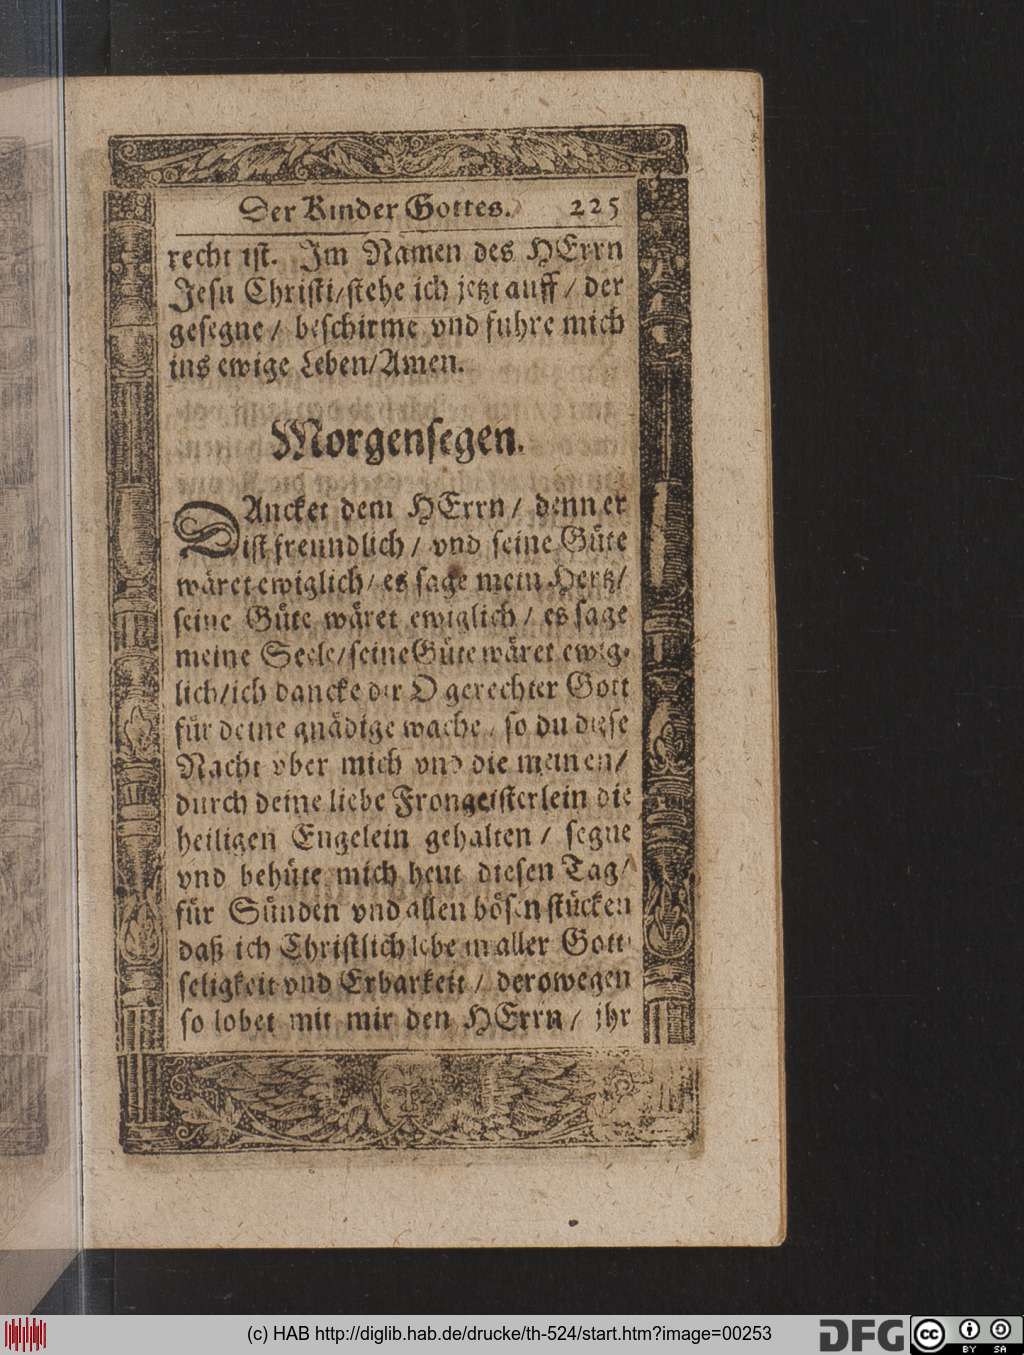 Der Kinder Gottes. 225
recht ist. Im Namen des HErrn
Jesu Christi/stehe ich jetzt auff/ der
gesegne/ beschirme vnd fuhre mich
ins ewige Leben/Amen.
Morgensegen.
DAncket dem HErrn/ denn er
ist freundlich/ vnd seine Güte
wäret ewiglich/ es sage mein Hertz/
seine Güte wäret ewiglich/ es sage
meine Seele/seine Güte wäret ewig-
lich/ich dancke dir O gerechter Gott
für deine gnädige wache, so du diese
Nacht vber mich vnd die meinen/
durch deine liebe Frongeisterlein die
heiligen Engelein gehalten/ segne
vnd behüte mich heut diesen Tag/
für Sünden vnd allen bösen stücken
daß ich Christlich lebe in aller Gott-
seligkeit vnd Erbarkeit/ derowegen
so lobet mit mir den HErrn/ jhr
(c) HAB http://diglib.hab.de/drucke/th-524/start.htm?image=00253
DFG
cc
BY SA